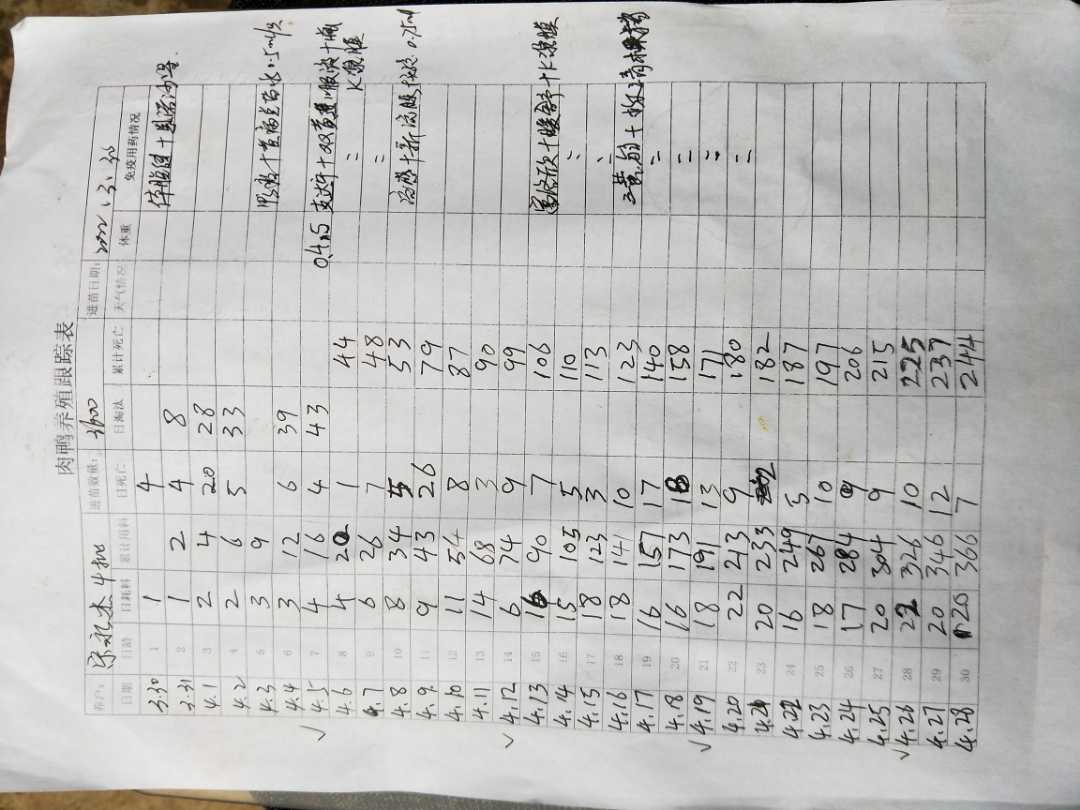 肉鸭养殖跟踪表
客户： 宋永杰 4批 进苗数量： 3600 进苗日期： 2022.3.30
日期 日龄 日耗料 累计用料 日死亡 日淘汰 累计死亡 天气情况 体重 免疫用药情况
3.30 1 1 4
3.31 2 1 2 4 8
4.1 3 2 4 20 28
4.2 4 2 6 5 33
4.3 5 3 9
4.4 6 3 12 6 39
√ 4.5 7 4 16 4 43 0.45
4.6 8 4 20 1 44 =
4.7 9 6 26 7 48 =
4.8 10 8 34 5 53
4.9 11 9 43 26 79
4.10 12 11 54 8 87
4.11 13 14 68 3 90
√ 4.12 14 6 74 9 99
4.13 15 16 90 7 106
4.14 16 15 105 5 110 =
4.15 17 18 123 3 113 =
4.16 18 18 141 10 123
4.17 19 16 157 17 140 =
4.18 20 16 173 18 158 =
√ 4.19 21 18 191 13 171 =
4.20 22 22 213 9 180 =
4.21 23 20 233 2 182
4.22 24 16 249 5 187
4.23 25 18 267 10 197
4.24 26 17 284 9 206
4.25 27 20 304 9 215
√ 4.26 28 22 326 10 225
4.27 29 20 346 12 237
4.28 30 20 366 7 244